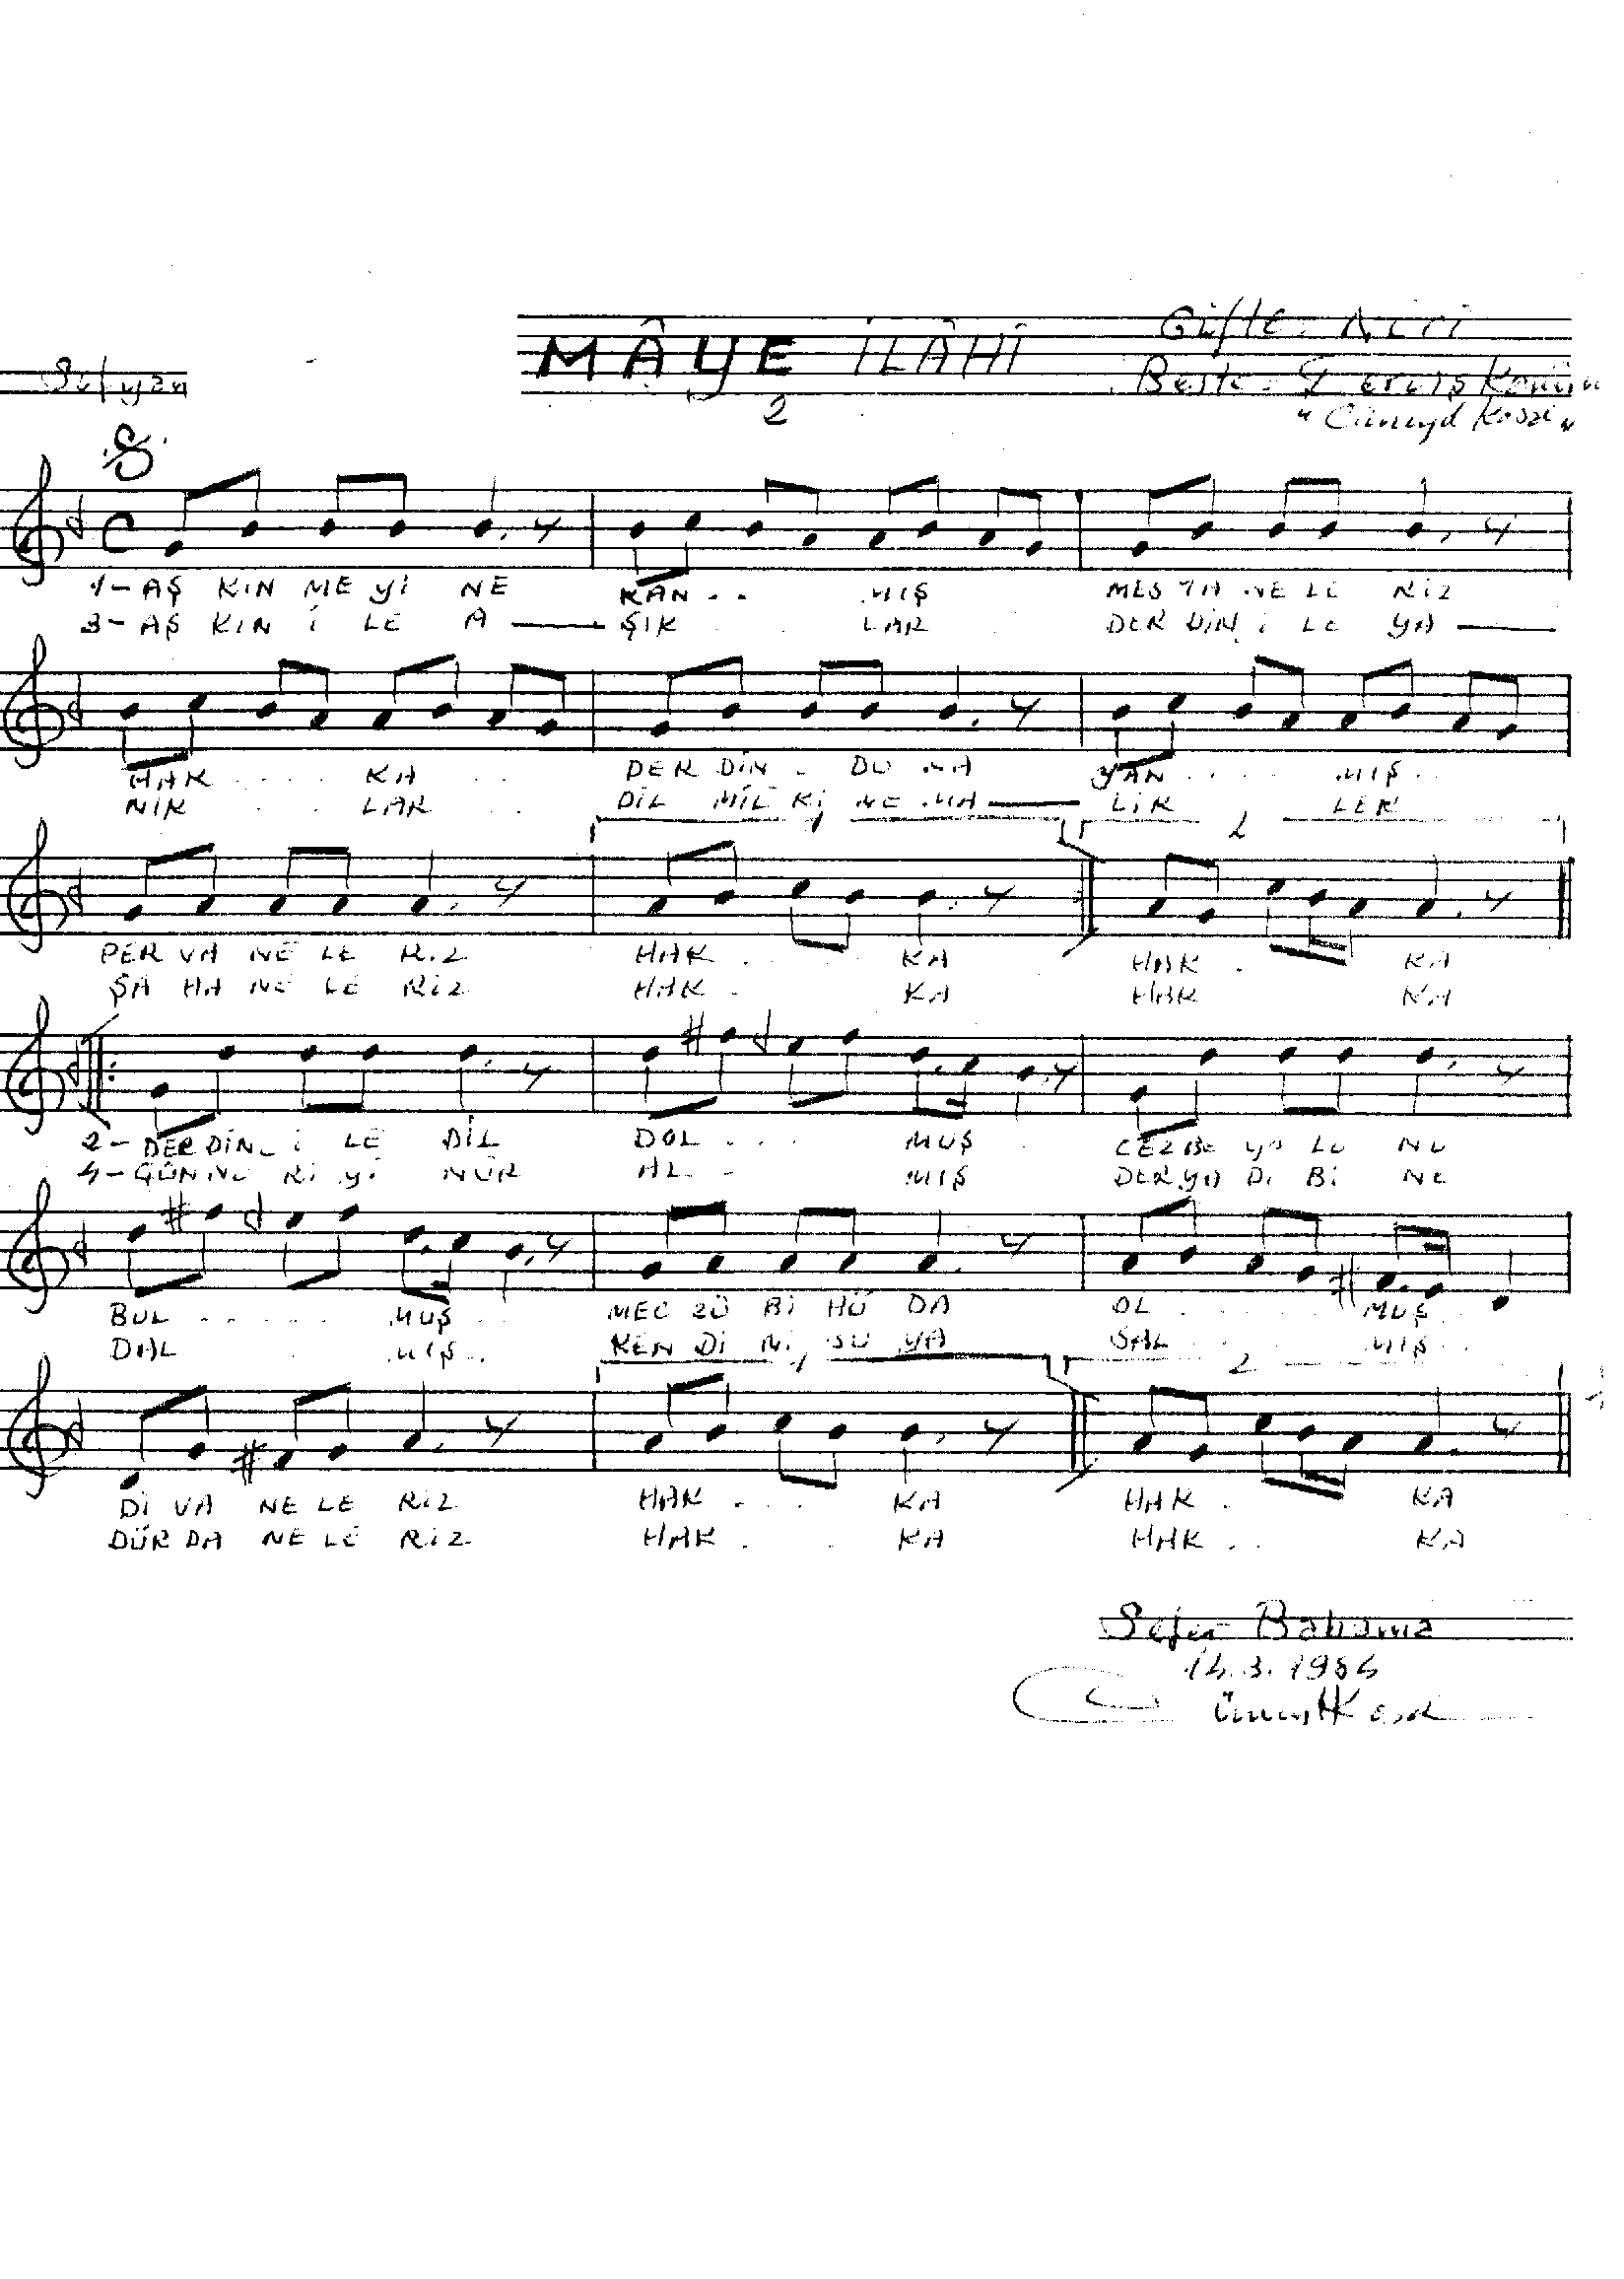 Sofyan
MÂYE İLÂHİ
2
Güfte:
Beste: Derviş
"Cüneyd Kosal"
1-AŞ KIN ME Yİ NE KAN . . MIŞ MES TA NE LE RİZ
3-AŞ KIN İ LE A — ŞIK . . LAR . DER DİN İ LE YA —
HAK . . . . KA . . DER DİN . DU NA YAN . . . . MIŞ . .
NIK . . . LAR . . DİL MİL Kİ NE MA — LİK . . LER
1 2
PER VA NE LE RİZ HAK . . . KA HAK . KA
ŞA HA NE LE RİZ HAK . . KA HAK KA
2-DER DİN İ LE DİL DOL . . . . MUŞ . CEZ BE YO LU NU
4-GÜN NU Rİ Yİ NÛR AL . . MIŞ DER YA Dİ Bİ NE
BUL . . . . . MUŞ . . MEC ZÛ Bİ HÜ DA OL . . . . MUŞ . .
DAL . . MIŞ . . KEN Dİ Nİ SU YA SAL . . . MIŞ . .
1 2
Dİ VA NE LE RİZ HAK . . . KA HAK . KA
DÜR DA NE LE RİZ HAK . . KA HAK . . KA
Sefer Babama